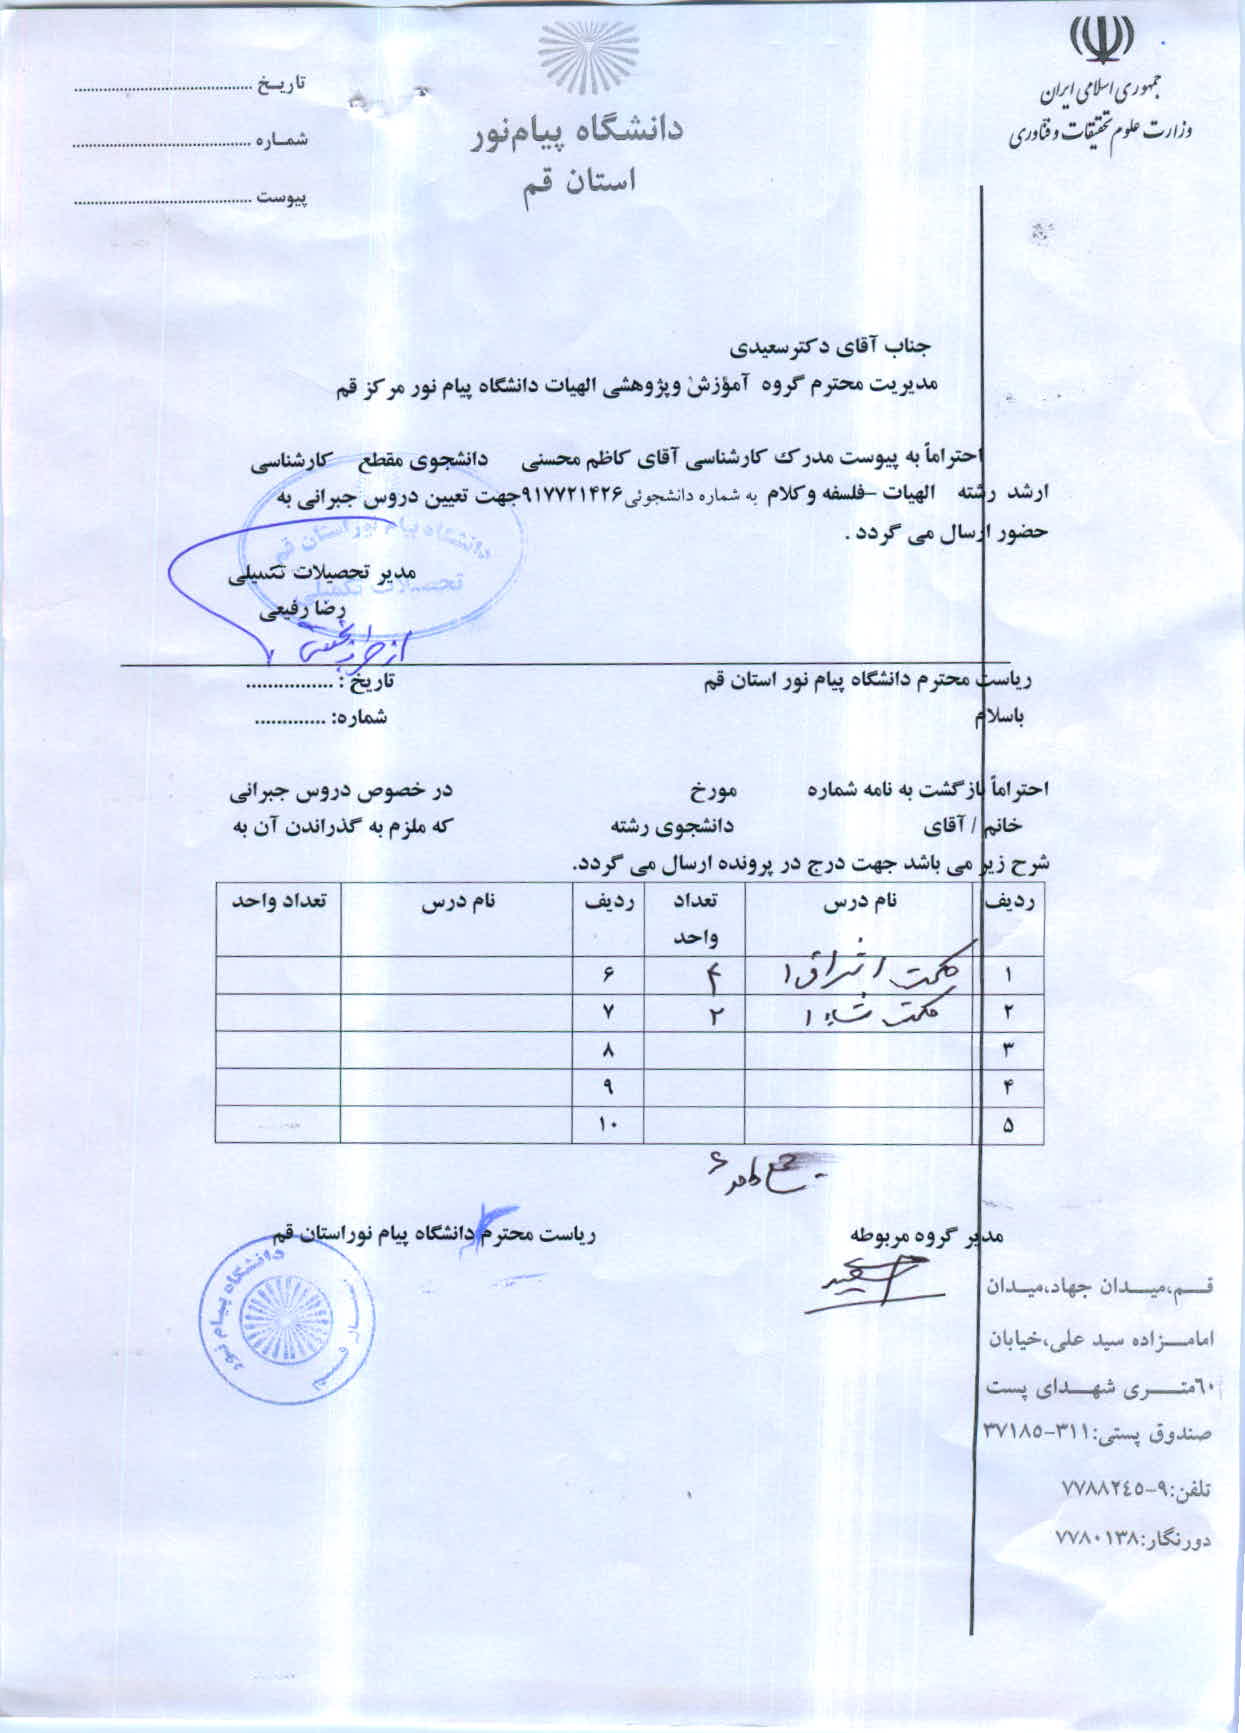 جمهوری اسلامی ایران
وزارت علوم تحقیقات و فناوری
دانشگاه پیام‌نور
استان قم
تاریخ ........................................
شماره ........................................
پیوست ........................................
جناب آقای دکترسعیدی
مدیریت محترم گروه آموزش وپژوهشی الهیات دانشگاه پیام نور مرکز قم
احتراماً به پیوست مدرک کارشناسی آقای کاظم محسنی دانشجوی مقطع کارشناسی
ارشد رشته الهیات –فلسفه وکلام به شماره دانشجوئی ۹۱۷۷۲۱۴۲۶جهت تعیین دروس جبرانی به
حضور ارسال می گردد .
دانشگاه پیام نور استان قم
تحصیلات تکمیلی
مدیر تحصیلات تکمیلی
رضا رفیعی
از طرف
ریاست محترم دانشگاه پیام نور استان قم تاریخ : ................
باسلام شماره: .............
احتراماً بازگشت به نامه شماره مورخ در خصوص دروس جبرانی
خانم / آقای دانشجوی رشته که ملزم به گذراندن آن به
شرح زیر می باشد جهت درج در پرونده ارسال می گردد.
ردیف نام درس تعداد واحد ردیف نام درس تعداد واحد
۱ حکمت اشراق ۱ ۴ ۶
۲ حکمت مشاء ۱ ۲ ۷
۳ ۸
۴ ۹
۵ ۱۰
جمع واحد ۶
مدیر گروه مربوطه ریاست محترم دانشگاه پیام نوراستان قم
سعیدی
دانشگاه پیام نور
قم،میدان جهاد،میدان
امامزاده سید علی،خیابان
۶۰متری شهدای پست
صندوق پستی:۳۱۱-۳۷۱۸۵
تلفن:۹-۷۷۸۸۲٤٥
دورنگار:۷۷۸۰۱۳۸